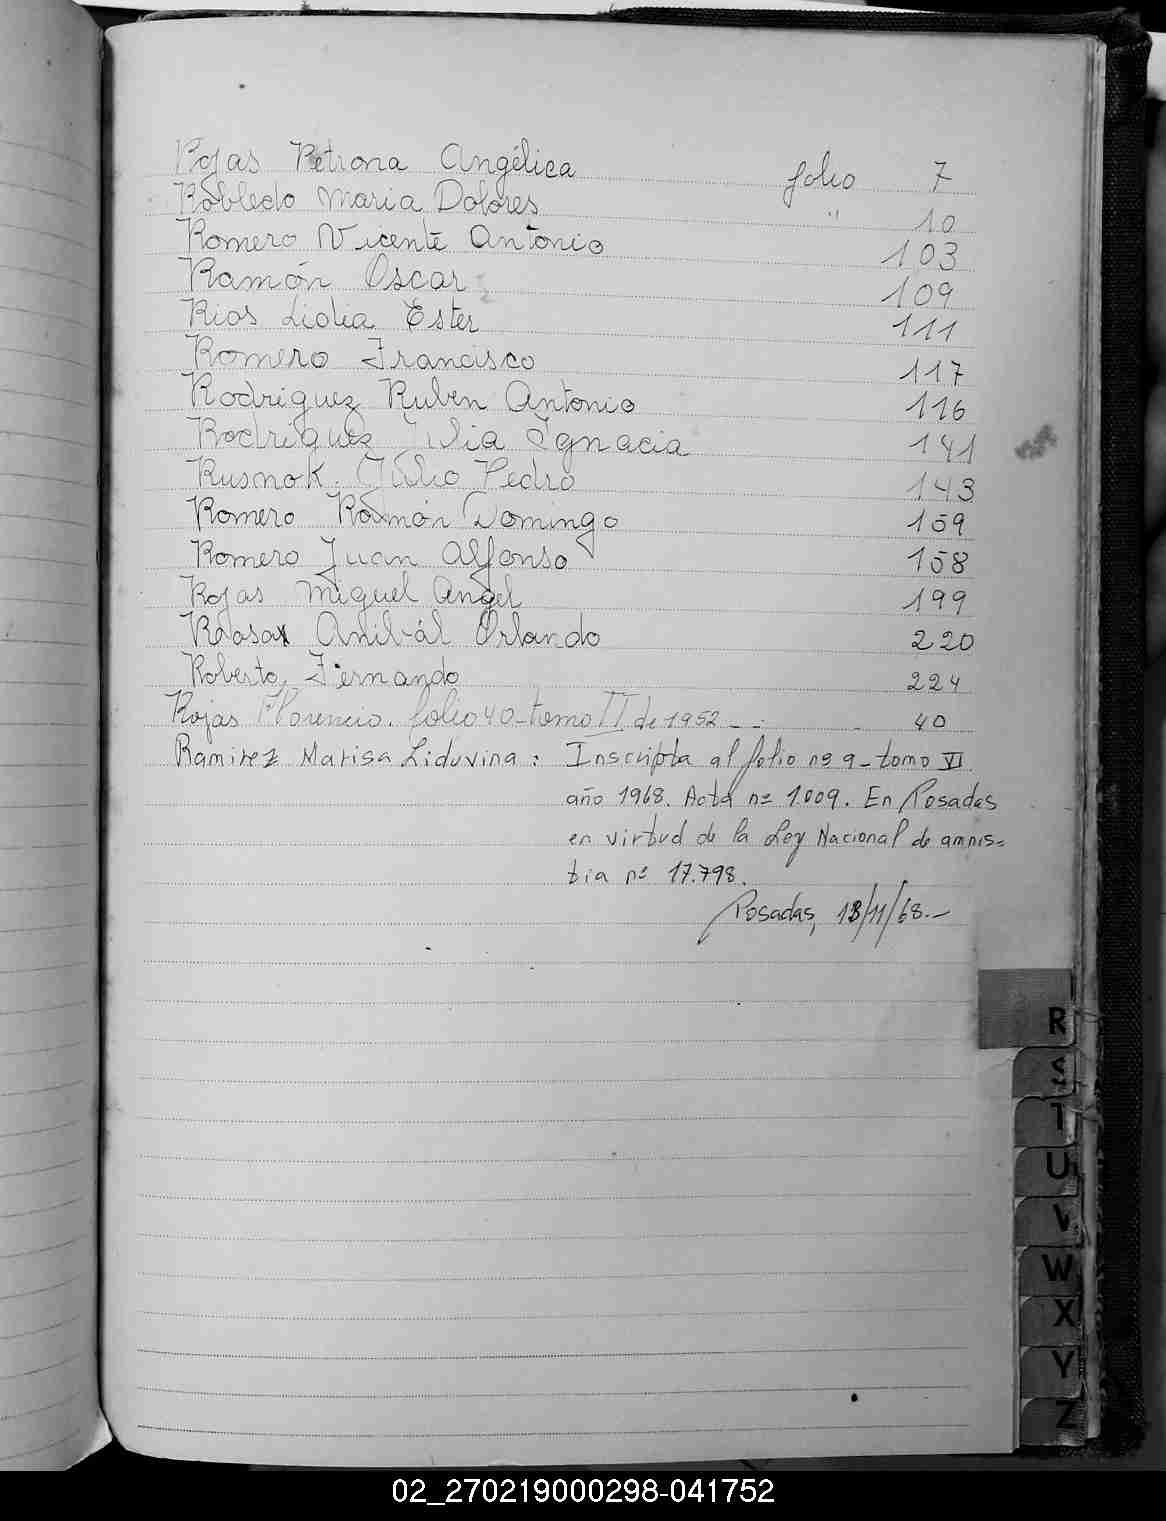 Rojas Petrona Angélica folio 7
Robledo Maria Dolores " 10
Romero Vicente Antonio 103
Ramón Oscar 109
Rios Lidia Ester 111
Romero Francisco 117
Rodriguez Ruben Antonio 116
Rodriguez Ignacia 141
Rusnok Julio Pedro 143
Romero Ramón Domingo 159
Romero Juan Alfonso 158
Rojas Miguel Angel 199
Anibál Orlando 220
Roberto Fernando 224
Rojas Florencio. folio 40-tomo II de 1952 - - 40
Ramirez Marisa Liduvina: Inscripta al folio nº 9-tomo VI
año 1968. Acta nº 1.009. En Posadas
en virtud de la Ley Nacional de amnis=
tia nº 17.798.
Posadas, 13/11/68.-
R
S
T
U
V
W
X
Y
Z
02_270219000298-041752